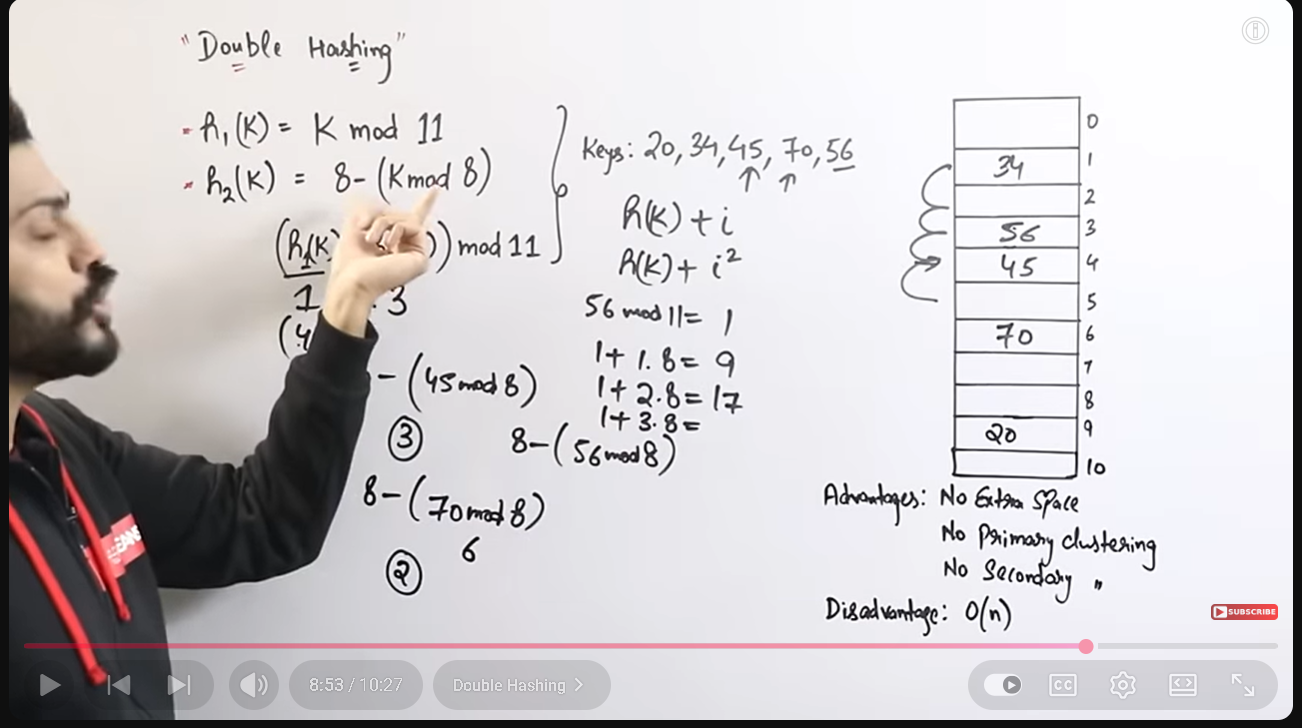 "Double Hashing"
h₁(K) = K mod 11
h₂(K) = 8-(Kmod 8)
(h₁(K) ) mod 11
1 . 3
(4
- (45mod 8)
③
8-(70mod8)
6
②
Keys: 20, 34, 45, 70, 56
h(K) + i
h(K) + i²
56 mod 11 = 1
1 + 1.8 = 9
1 + 2.8 = 17
1 + 3.8 =
8-(56mod8)
0
34 1
2
56 3
45 4
5
70 6
7
8
20 9
10
Advantages: No Extra Space
No Primary clustering
No Secondary "
Disadvantage: O(n)
SUBSCRIBE
8:53 / 10:27
Double Hashing >
CC